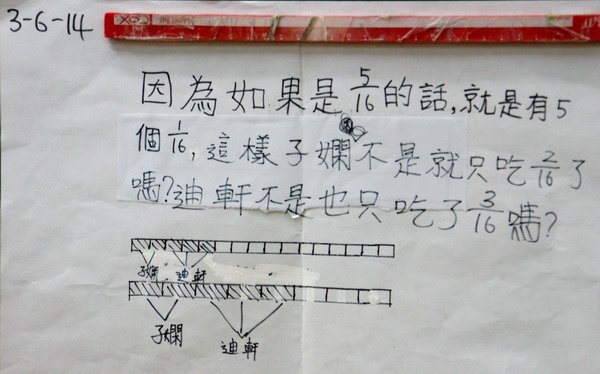 3-6-14
因為如果是5/16的話,就是有5
個1/16,這樣子嫻不是就只吃2/16了
嗎?迪軒不是也只吃了3/16嗎?
子嫻 迪軒
子嫻
迪軒